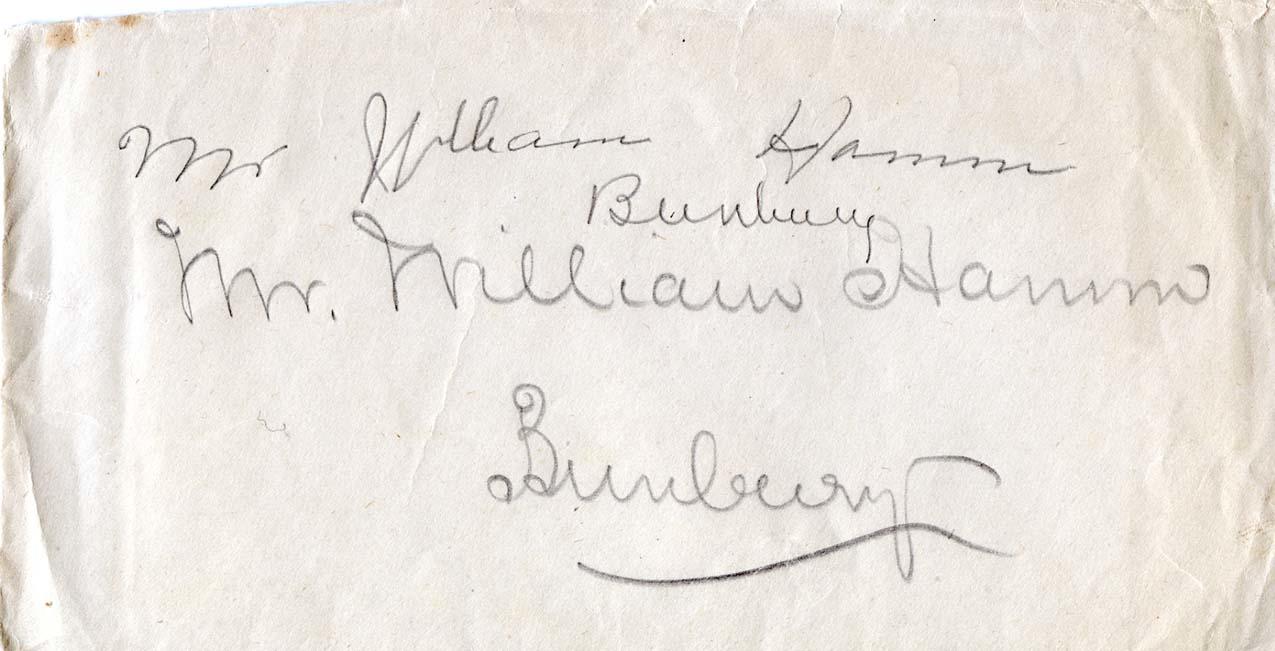 Mr William Hamm
Bunbury
Mr. William Hamm
Bunbury